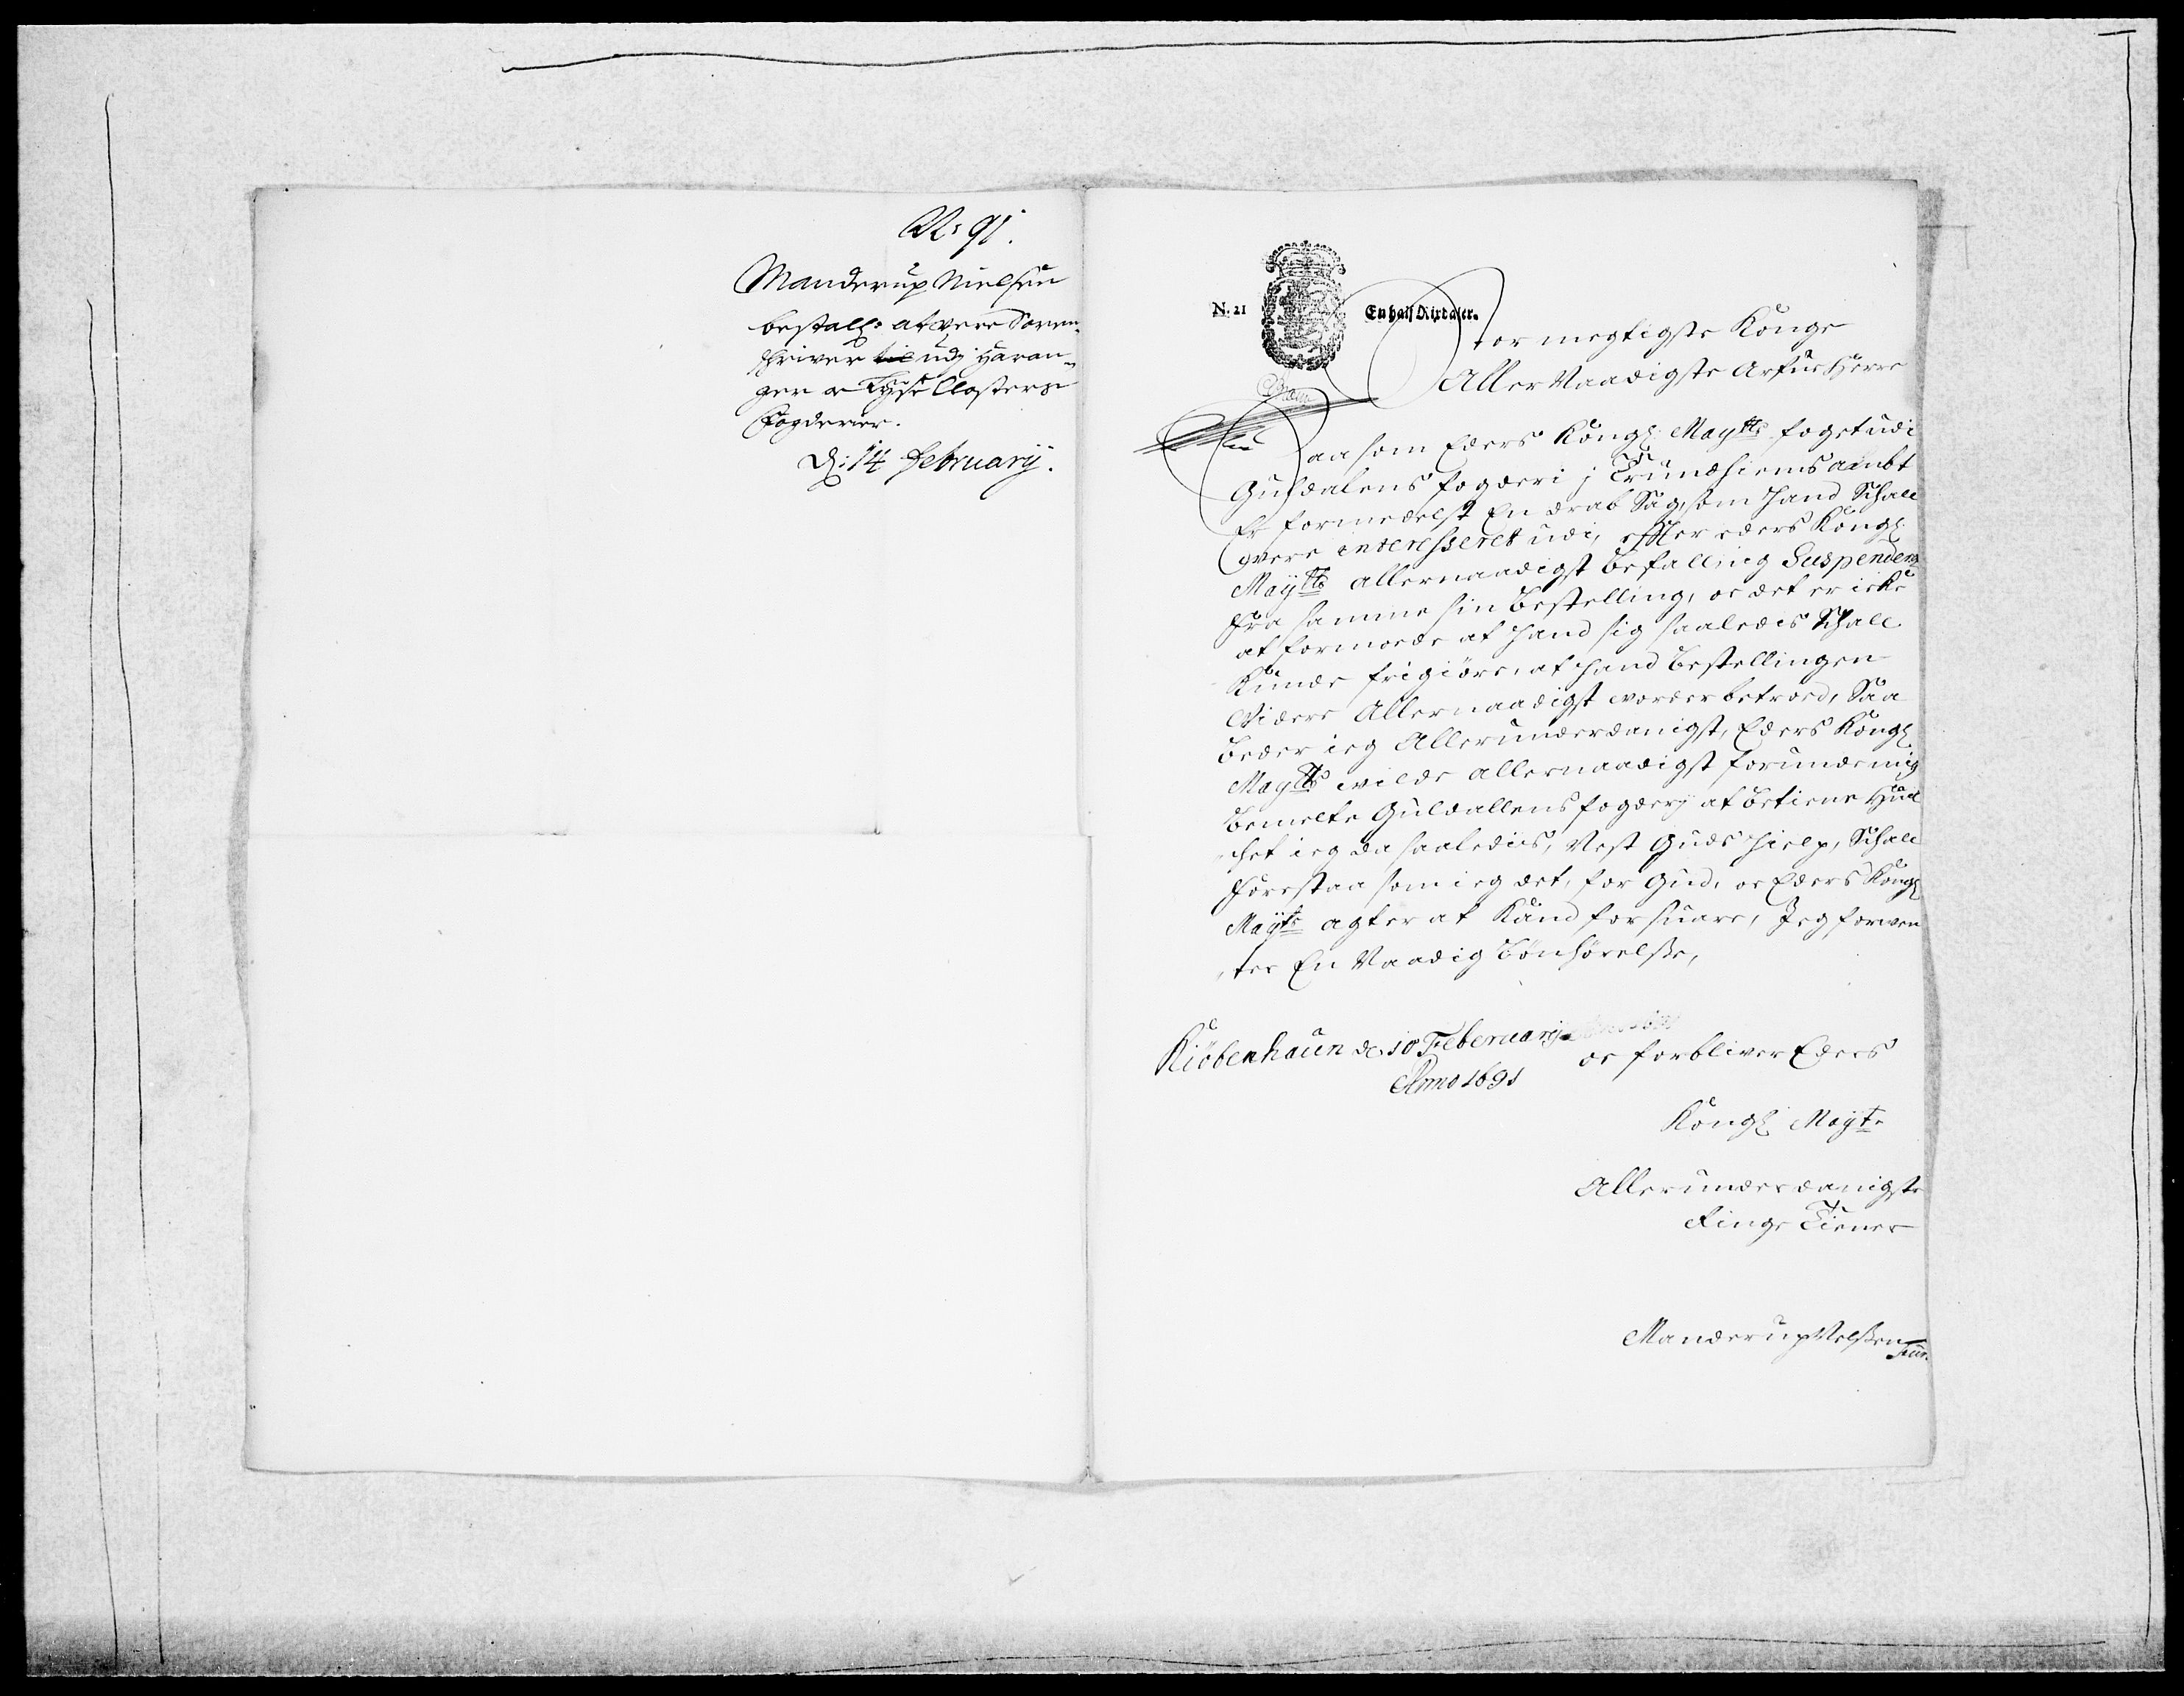 No: 91.
Manderup Nielsen
bestall: at were Soren-
skriver til udj Haran-
ger oc Lyse Closters
Fogderier.
D: 14 February.
N. 21
En half Rixdaler.
Stormegtigste Konge
Aller Naadigste Arfue Herre
Saa som Eders Kongl: Maytts fogetudi
Guldalens fogderi j Trundhiems ambt
Er formedelst En drab Sag, som hand Schall
were interesseret udi, effter eders Kongl:
Maytts allernaadigst befalling Suspendert
fra samme sin bestelling, oc det er icke
at formode at hand sig saaledis Schall
Kunde frigiöre, at hand bestellingen
Videre Allernaadigst worder betroed, Saa
beder ieg Allerunderdanigst, Eders Kongl
Maytts wilde allernaadigst forunde mig
bemelte Guldallens fogderj at betiene Huil
chet ieg da saaledis, Nest Guds hielp, Schall
forestaa som ieg det, for Gud, oc Eders Kongl
Mayts agter at Kand forsuare, Jeg forwen
ter En Naadig bönhörelsse,
Kiöbenhaun de 10 Februarij
Anno 1691
oc forbliver Eders
Kongl Mayts
Allerunderdanigste
Ringe Tiener
Manderup Nelssen